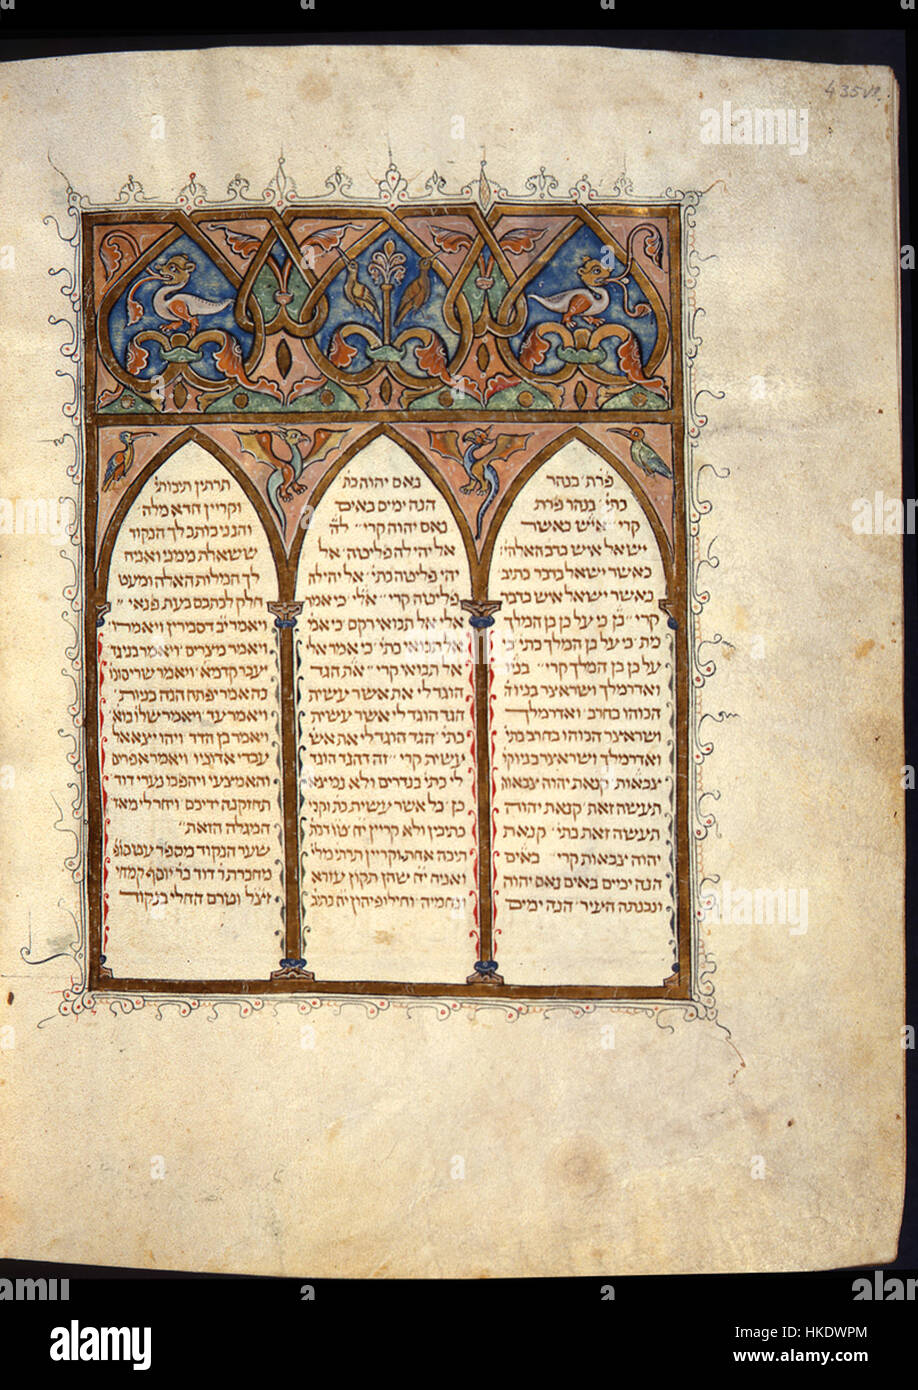 פרת׳ בנהר
כתי׳ בנהר פרת
קרי׳ איש כאשר
ישאל איש בדבר האלהי׳
כאשר ישאל בדבר כתיב
כאשר ישאל איש בדבר
קרי׳ בן כי על כן בן המלך
מת כי על בן המלך כתי׳ כי
על כן בן המלך קרי׳ בניו
ואדרמלך ושראצר בניו
הכוהו בחרב ואדרמלך
ושראצר הכוהו בחרב כתי׳
ואדרמלך ושראצר בניו קרי
צבאות קנאת יהוה צבאות
תעשה זאת קנאת יהוה
תעשה זאת כתי׳ קנאת
יהוה צבאות קרי׳ באים
הנה ימים באים נאם יהוה
ונבנתה העיר הנה ימים
נאם יהוה כת
הנה ימים באים
נאם יהוה קרי׳ לה
אל יהי לה פליטה אל
יהי פליטה כתי׳ אל יהי לה
פליטה קרי׳ אלי כי אמר
אלי אל תבואי ריקם כי אמ
אל תבואי כתי׳ כי אמר אל
אל תבואי קרי׳ את הגד
הוגד לי את אשר עשית
הגד הוגד לי אשר עשית
כתי׳ הגד הוגד לי את אש
עשית קרי׳ זה דהגד הוגד
לי כתי׳ בנדרים ולא נמיצא
כן כל אשר עשית כת וקרי
כתיבין ולא קריין יח טו דכת
תיבה אחת וקריין תרתי מלי׳
ואניה יח שהן תקון עזרא
ונחמיה וחילופיהון יח כתיב
תרתין תיבותי
וקריין חדא מלה
והנני כותב לך הנקוד
ששאלת ממני ואניח
לך המלות האלה ומעט
חלק לכתבם בעת פנאי
ויאמר יב דסמיכין ויאמר לו
ויאמר מיצרים ויאמר בניגד
יעבר קדמא ויאמר שריסונו
כה אמר יפתח הנה בניות
ויאמר עד ויאמר שלו בוא
ויאמר בן הדד ויהי יוצא אל
עבדי אדוניו ויאמר אפרים
והאמצעי ויהפכו נערי דוד
תחזקנה ידיכם ויחר לי מאד
המגלה הזאת
שער הנקוד מספר עט סופ׳
מחברת ר׳ דוד בר׳ יוסף קמחי
זצ״ל וטרם החלי בנקוד
435vº
alamy
Image ID: HKDWPM
www.alamy.com